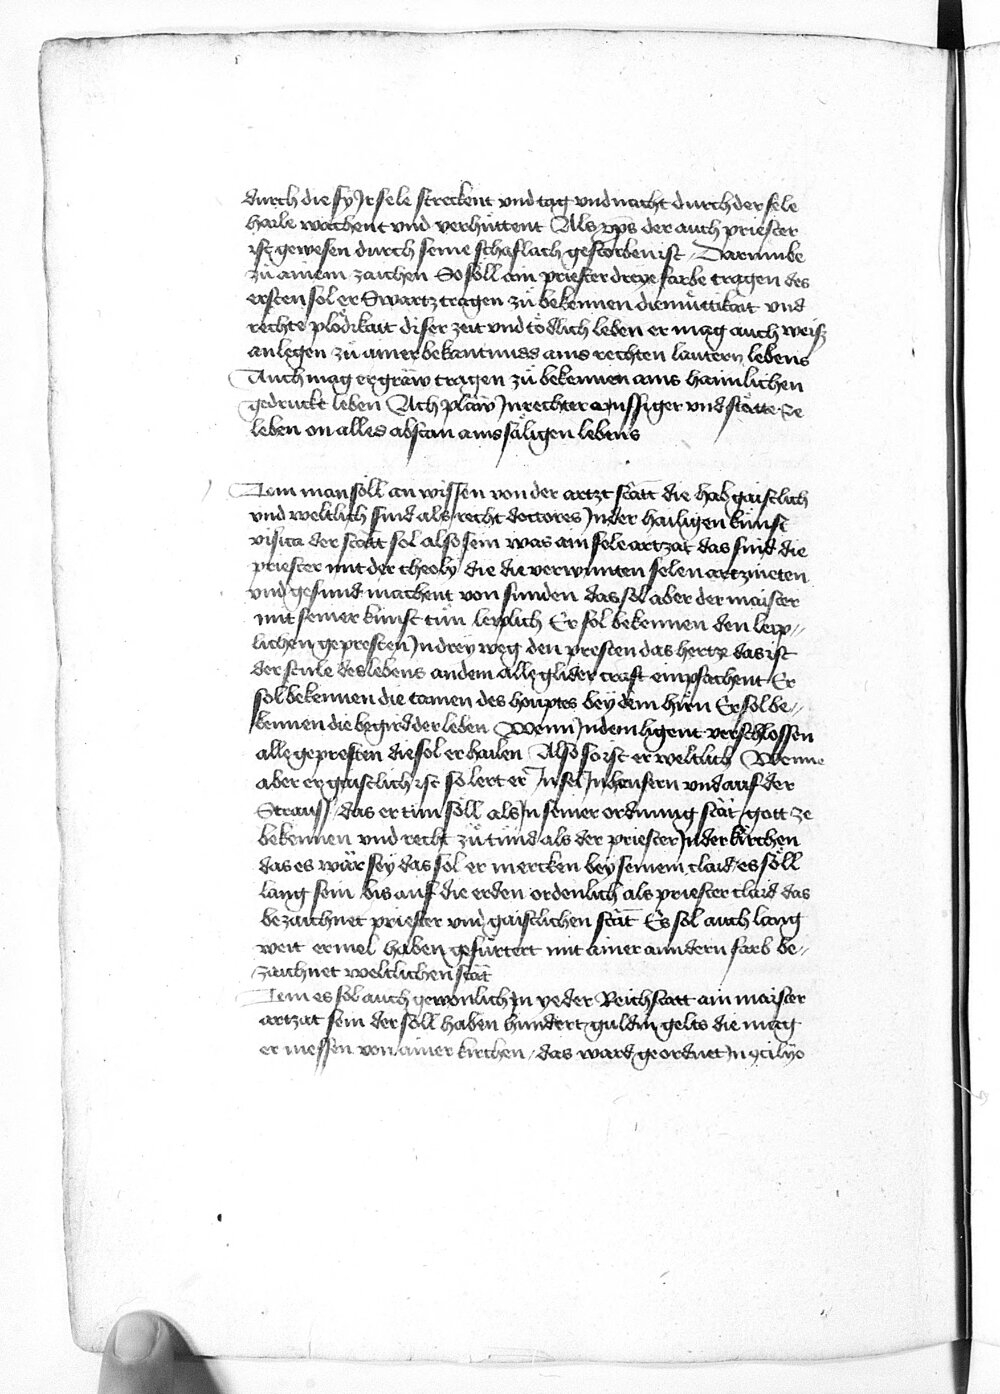 durch die sy Ir sele streckent vnd tag vnd nacht durch der sele
haile wachent vnd verhuͤttent Als xp̄s der auch priester
ist gewesen durch seine schaflach gestorben ist / Darumbe
zuͦ ainem zaichen So soͤll ain priester dreye farbe tragen des
ersten sol er Swartz tragen zuͦ bekennen diemuͤttikait vnd
rechte ploͤdikait diser zeit vnd toͤdlich leben er mag auch weiſz
anlegen zuͦ ainer bekantnuss ains rechten lautern lebens
Auch mag er graw tragen zuͦ bekennen ains haimlichen
gedruckt leben Ach plaw In rechter vnd staͤtte
leben on alles abstan ains saͤligen lebens
Item man soͤll an wissen von der artzt statt die hab gaistlich
vnd weltlich sind als recht doctores In der hailigen kunst
visica der statt sol also sein was ain sele artzat das sind die
priester mit der theoly die die verwunten selen artznieten
vnd gesund machent von sunden das sol aber der maister
mit seiner kunst tuͦn leyplich Er sol bekennen den leyp//
lichen gepresten In drey weg den presten das hertze das ist
der stule des lebens an dem alle glider craft empfachent Er
sol bekennen die tamen des houptes bey dem hirn Er sol be//
kennen die begird der leben Wenn In dem ligent verschlossen
alle gepresten die sol er hailen Also so ist er weltlich Wenne
aber er gaistlich ist so lert er In sel In heusern vnd auf der
Strauss / das er tun soͤll als In seiner ordnung stat / gott ze
bekennen vnd recht zuͦ tuͤnd als der priester In der kirchen
das es war sey das sol er mercken bey seinem claid es soͤll
lang sein bis auf die erden ordenlich als priester claid das
bezaichnet priester vnd gaistlichen statt Es sol auch lang
weit ermel haben gefuͤttert mit ainer anndern farb be//
zaichnet weltlichen stat
Item es sol auch gewonlich In yeder Reichstatt ain maister
artzat sein der soͤll haben hundert guldin gelts die mag
er niessen von ainer kirchen / das ward geordnet In 9cilyo